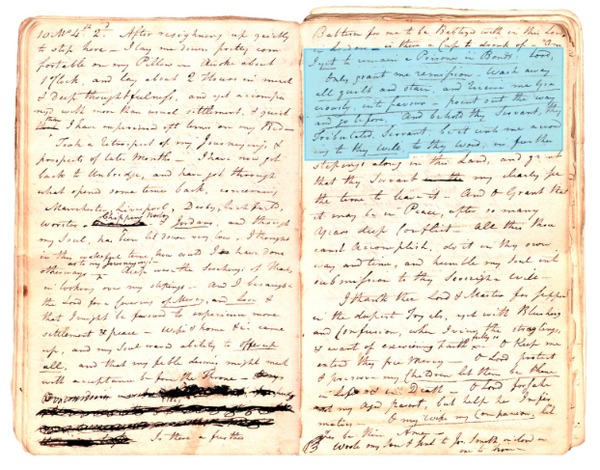 10 Mo 4th 2d. After resigning up quietly
to stop here – I lay me down pretty com
fortable on my Pillow – Awoke about
1 o'clock, and lay about 2 Hours in much
& Deep thoughtfulness, and yet accompa
nied with more than usual settlement, & quiet
than I have experienced oft times on my Bed –
Took a Retrospect of my Journeyings, &
prospects of late Months – I have now got
back to Uxbridge, and have got through
what spend some time back, concerning
Manchester, Liverpool, Derby,
Worcester, Chipping Norton & Jordans, and though
my Soul, has been let down very low, I thought
in this wakeful time, how could I have done
otherways as to my journeyings – these were the feelings of that,
in looking over my steppings – And I besought
the Lord for a covering of Mercy, and Love &
that I might be favored to experience more
settlement & peace – Wife & home came
up, and my Soul ward ability to offer up
all, and that my feeble doings might meet
with acceptance before the Throne –
Is there a further
Baptism for me to be Baptized with in this Land
in London – is there a Cup to drink of – Am
I yet to remain a Prisoner in Bonds, Lord,
only grant me remission, Wash away
all guilt and stain, and receive me Gra
ciously, into favour – point out the way
and go before, And behold thy Servant, thy
Tribulated Servant. be it unto me accord
ing to thy Will, to thy Word, in further
steppings along in this Land, and grant
that thy Servant may clearly see
the time to leave it – And O Grant that
it may be in Peace, after so many
Years deep Conflict – All this thou
canst Accomplish, do it in thy own
way and time, and humble my Soul into
submission to thy Sovereign Will –
I thank thee Lord & Master for support
in the deepest Tryals, yet with Blushing
and Confusion, when viewing the struglings,
& want of exercising faith fully – O Keep me
entred thy free Mercy – O Lord protect
& preserve my Children let them be thine
in Death – O Lord forsake
not my Aged parent, but help her Infir
mities – O my Wife my Companion, let
Thee be thine Amen –
Wrote my Son & And to Jos. Smith in London